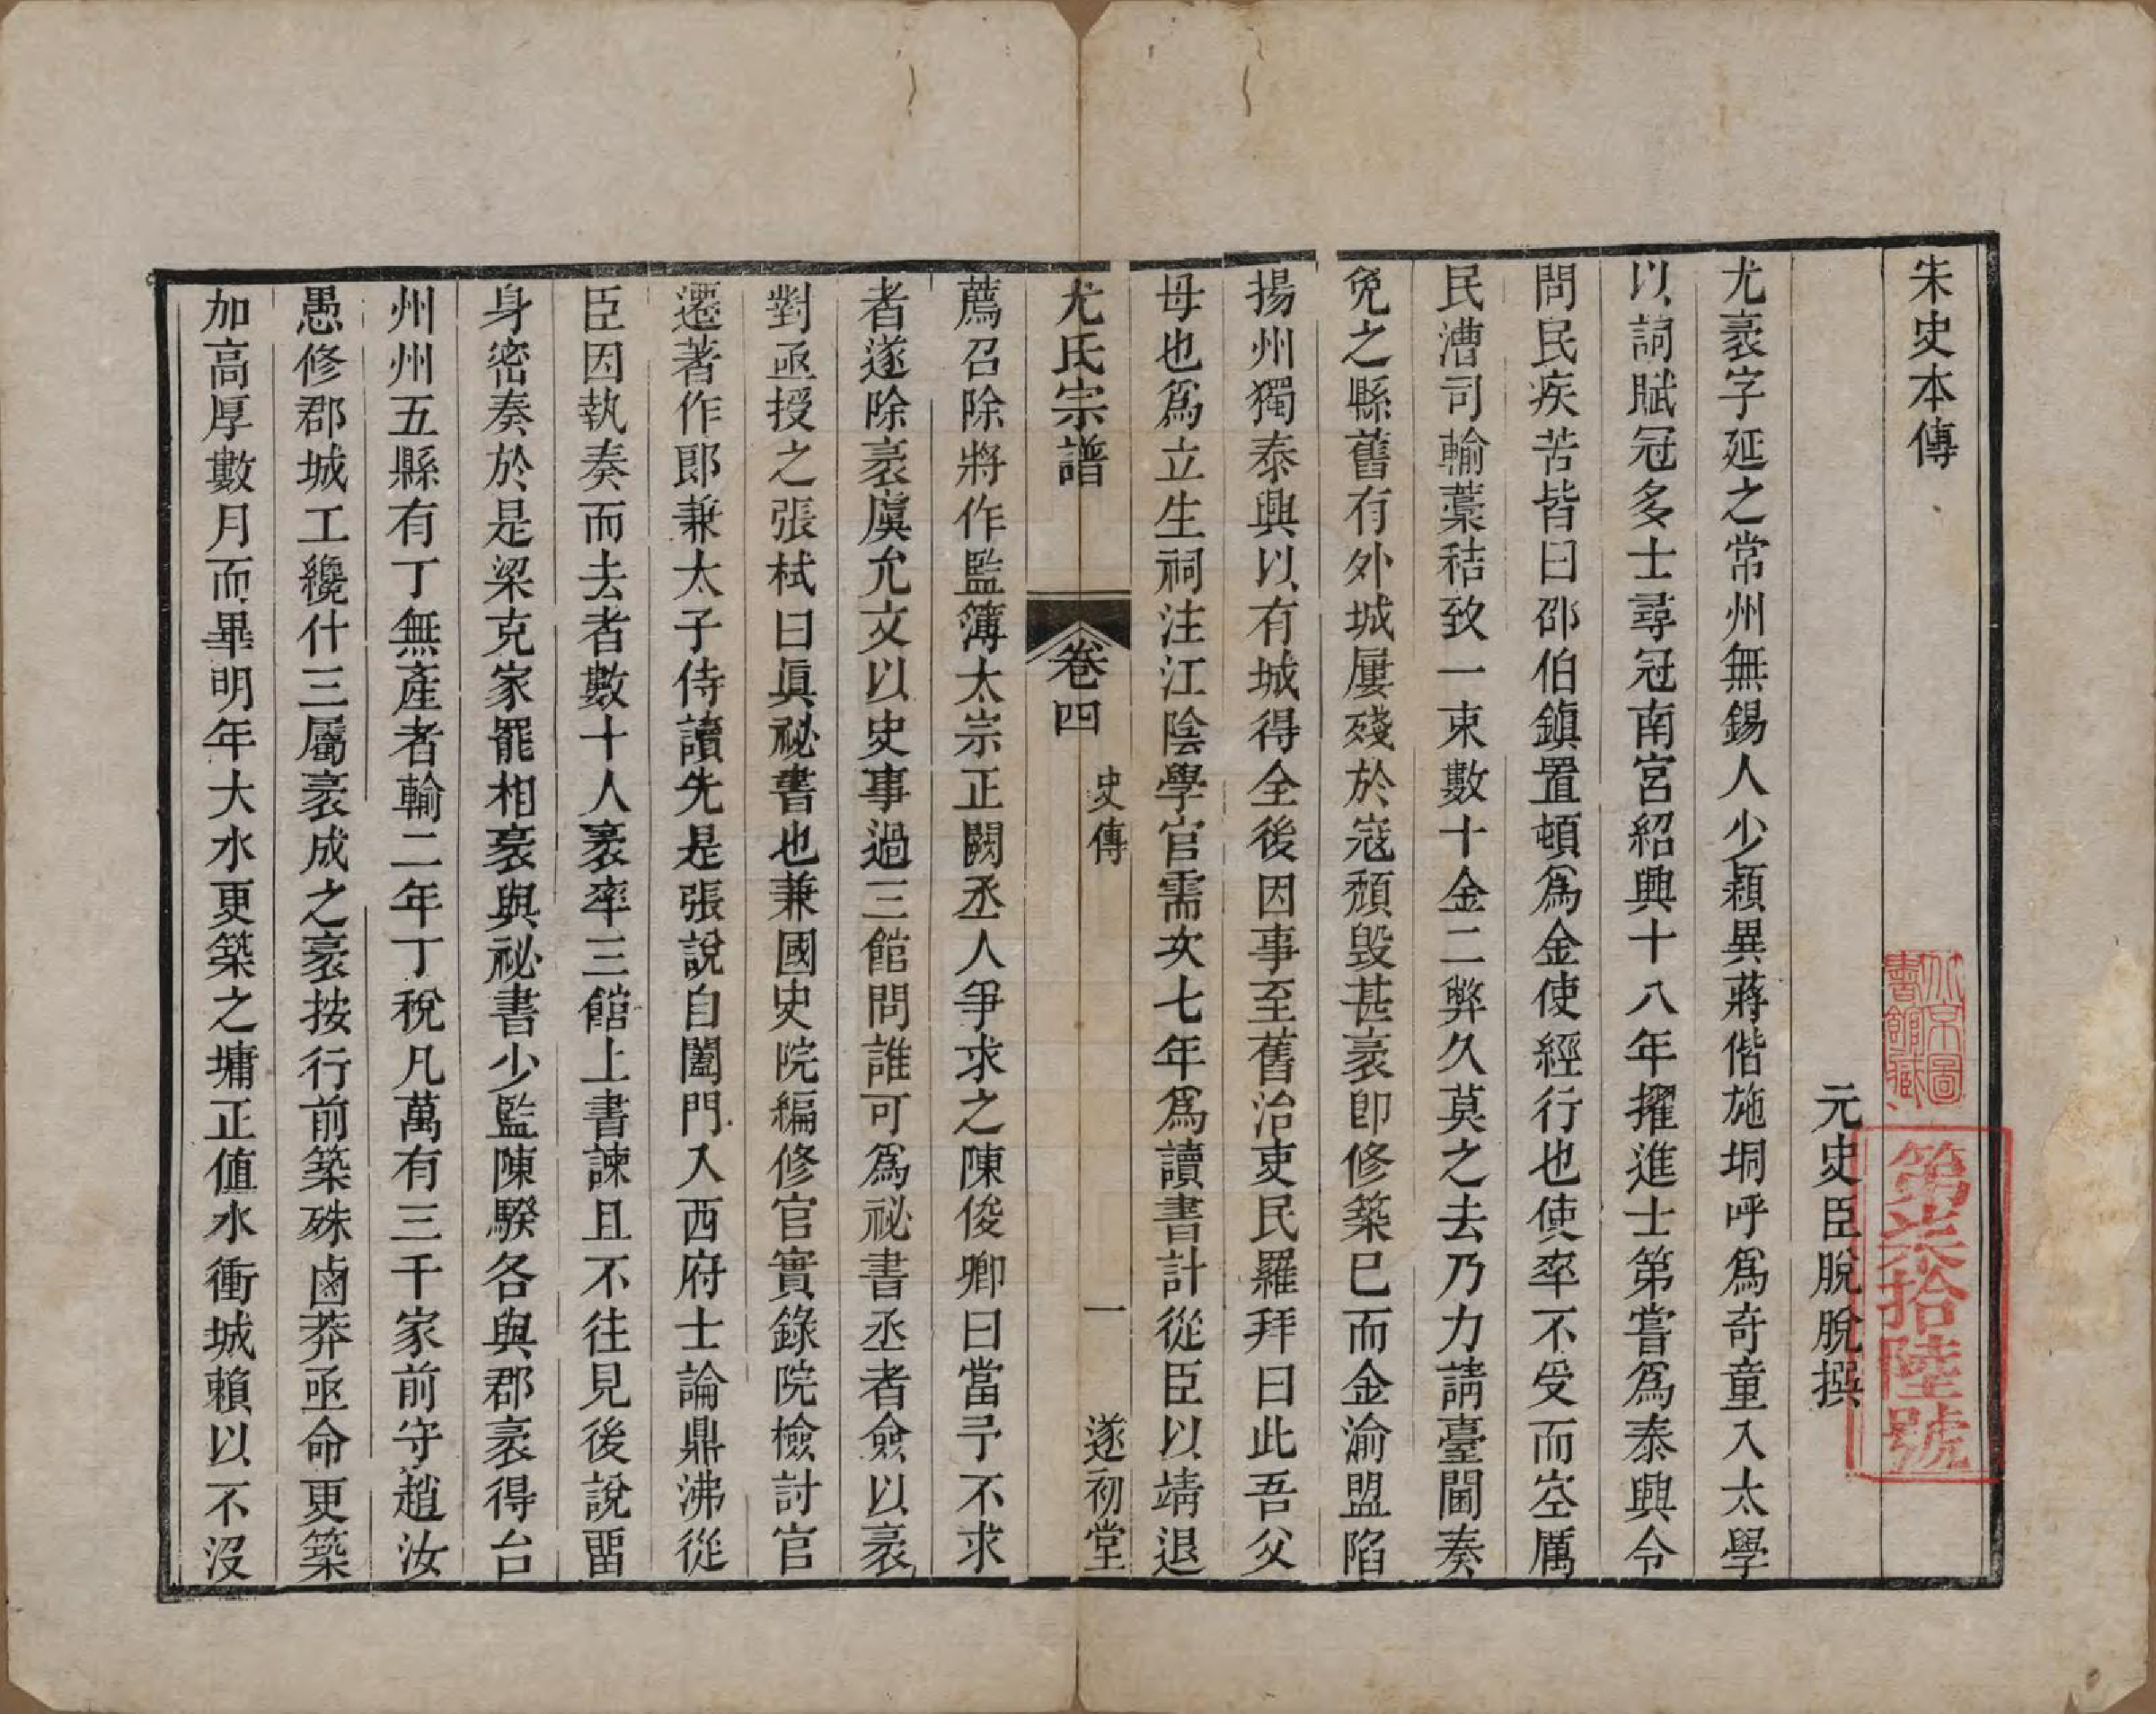 宋史本傳
元史臣脫脫撰
尤袤字延之常州無錫人少穎異蔣偕施坰呼爲奇童入太學
以詞賦冠多士尋冠南宮紹興十八年擢進士第嘗爲泰興令
問民疾苦皆曰邵伯鎮置頓爲金使經行也使率不受而空厲
民漕司輸藁秸致一束數十金二弊久莫之去乃力請臺閫奏
免之縣舊有外城屢殘於寇頹毀甚袤卽修築已而金渝盟陷
揚州獨泰興以有城得全後因事至舊治吏民羅拜曰此吾父
母也爲立生祠注江陰學官需次七年爲讀書計從臣以靖退
尤氏宗譜
卷四
史傳
一
遂初堂
薦召除將作監簿太宗正闕丞人爭求之陳俊卿曰當予不求
者遂除袤虞允文以史事過三館問誰可爲祕書丞者僉以袤
對亟授之張栻曰眞祕書也兼國史院編修官實錄院檢討官
遷著作郎兼太子侍讀先是張說自閤門入西府士論鼎沸從
臣因執奏而去者數十人袤率三館上書諫且不往見後說畱
身密奏於是梁克家罷相袤與祕書少監陳騤各與郡袤得台
州州五縣有丁無產者輸二年丁稅凡萬有三千家前守趙汝
愚修郡城工纔什三屬袤成之袤按行前築殊鹵莽亟命更築
加高厚數月而畢明年大水更築之墉正值水衝城賴以不沒
北京圖
書館藏
第柒拾陸號